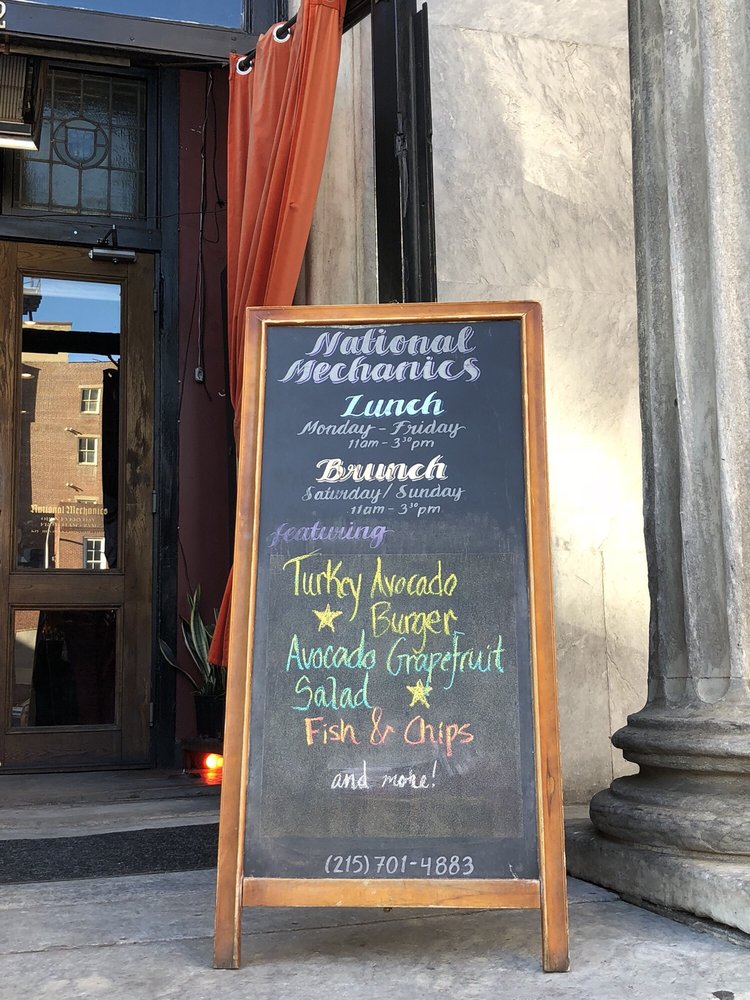 2
National
Mechanics
Lunch
Monday - Friday
11am - 3³⁰pm
Brunch
Saturday/Sunday
11am - 3³⁰pm
featuring
Turkey Avocado
Burger
Avocado Grapefruit
Salad
Fish & Chips
and more!
(215) 701-4883
National Mechanics